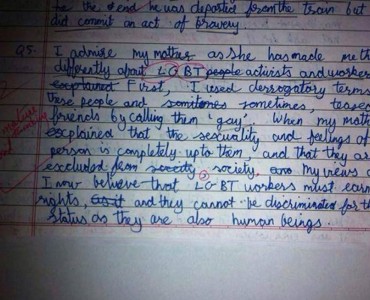 he the end he was departed from the train but
did commit an act of bravery
Q5. I admire my mother as she has made me th
differently about LGBT people activists and workers
explained First, I used derrogatory terms
these people and somtimes sometimes, teased
friends by calling them 'gay'. When my moth
explained that the sexuality and feelings of
person is completely upto them, and that they ar
excluded from society society, and My views c
I now believe that LGBT workers must earn
rights, as it and they cannot be discriminated for th
status as they are also human beings.